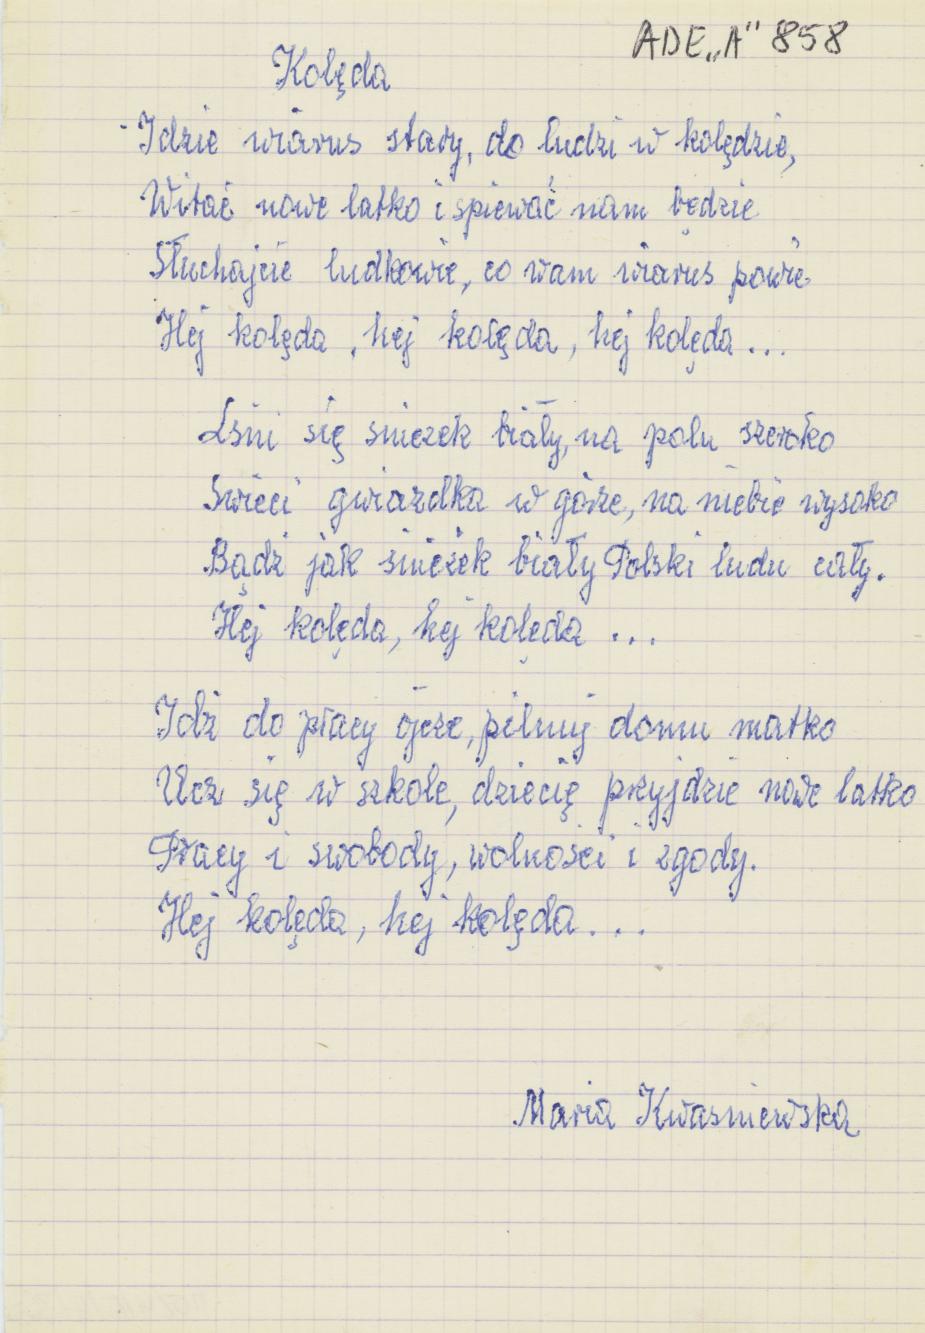 ADE„A" 858
Kolęda
Idzie wiarus stary, do ludzi w kolędzie,
Witać nowe latko i śpiewać nam będzie
Słuchajcie ludkowie, co wam wiarus powie
Hej kolęda, hej kolęda, hej kolęda...
Lśni się śnieżek biały, na polu szeroko
Świeci gwiazdka w górze, na niebie wysoko
Bądź jak śnieżek biały Polski ludu cały.
Hej kolęda, hej kolęda ...
Idź do pracy ojcze, pilnuj domu matko
Ucz się w szkole, dziecię przyjdzie nowe latko
Pracy i swobody, wolności i zgody.
Hej kolęda, hej kolęda...
Maria Kwaśniewska